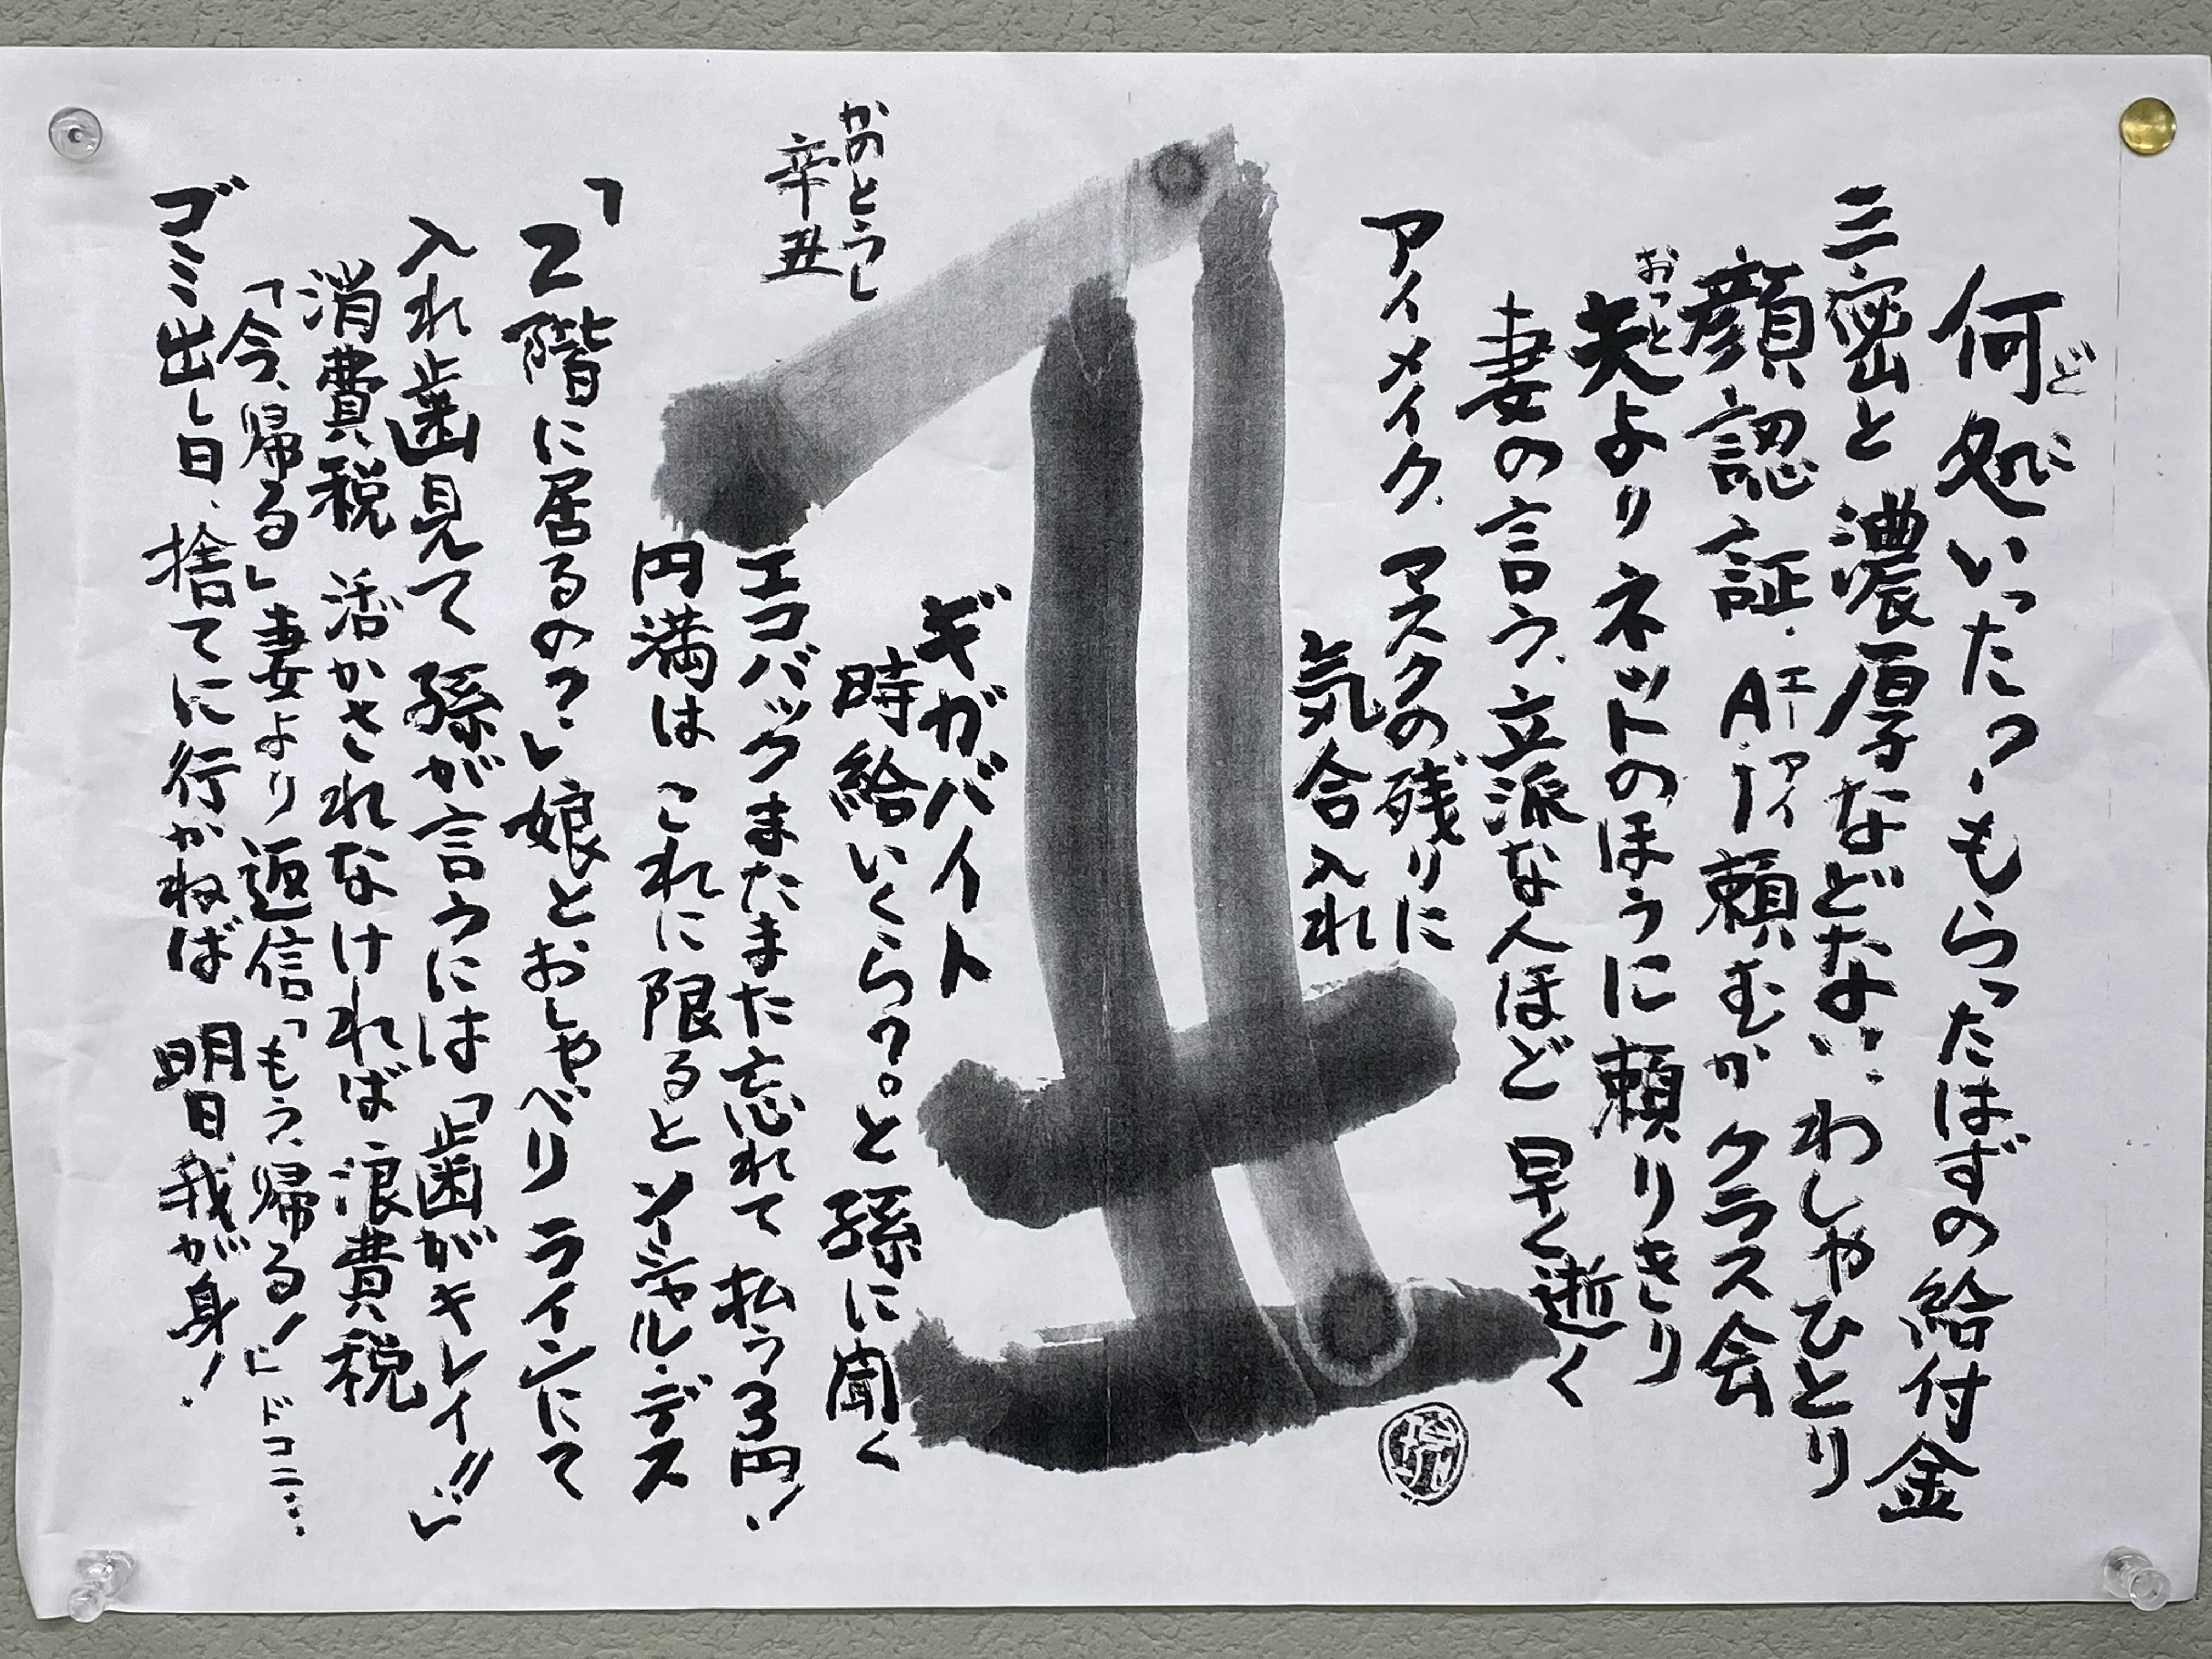 何処いった?もらったはずの給付金
どこ
三密と 濃厚などない!わしゃひとり
顔認証.AI頼むか クラス会
エーアイ
夫よりネットのほうに頼りきり
おっと
妻の言う、立派な人ほど 早く逝く
アイメイク、マスクの残りに
気合入れ
丑
かのとうし
辛丑
ギガバイト
時給いくら?。と孫に聞く
エコバックまたまた忘れて 払う3円!
円満は これに限ると ソーシャル・デス
「2階に居るの?」娘とおしゃべり ラインにて
入れ歯見て 孫が言うには「歯がキレイ!!」
消費税 活かされなければ 浪費税
「今、帰る」妻より返信「もう、帰る!」ドコニ…
ゴミ出し日、捨てに行かねば 明日我が身!